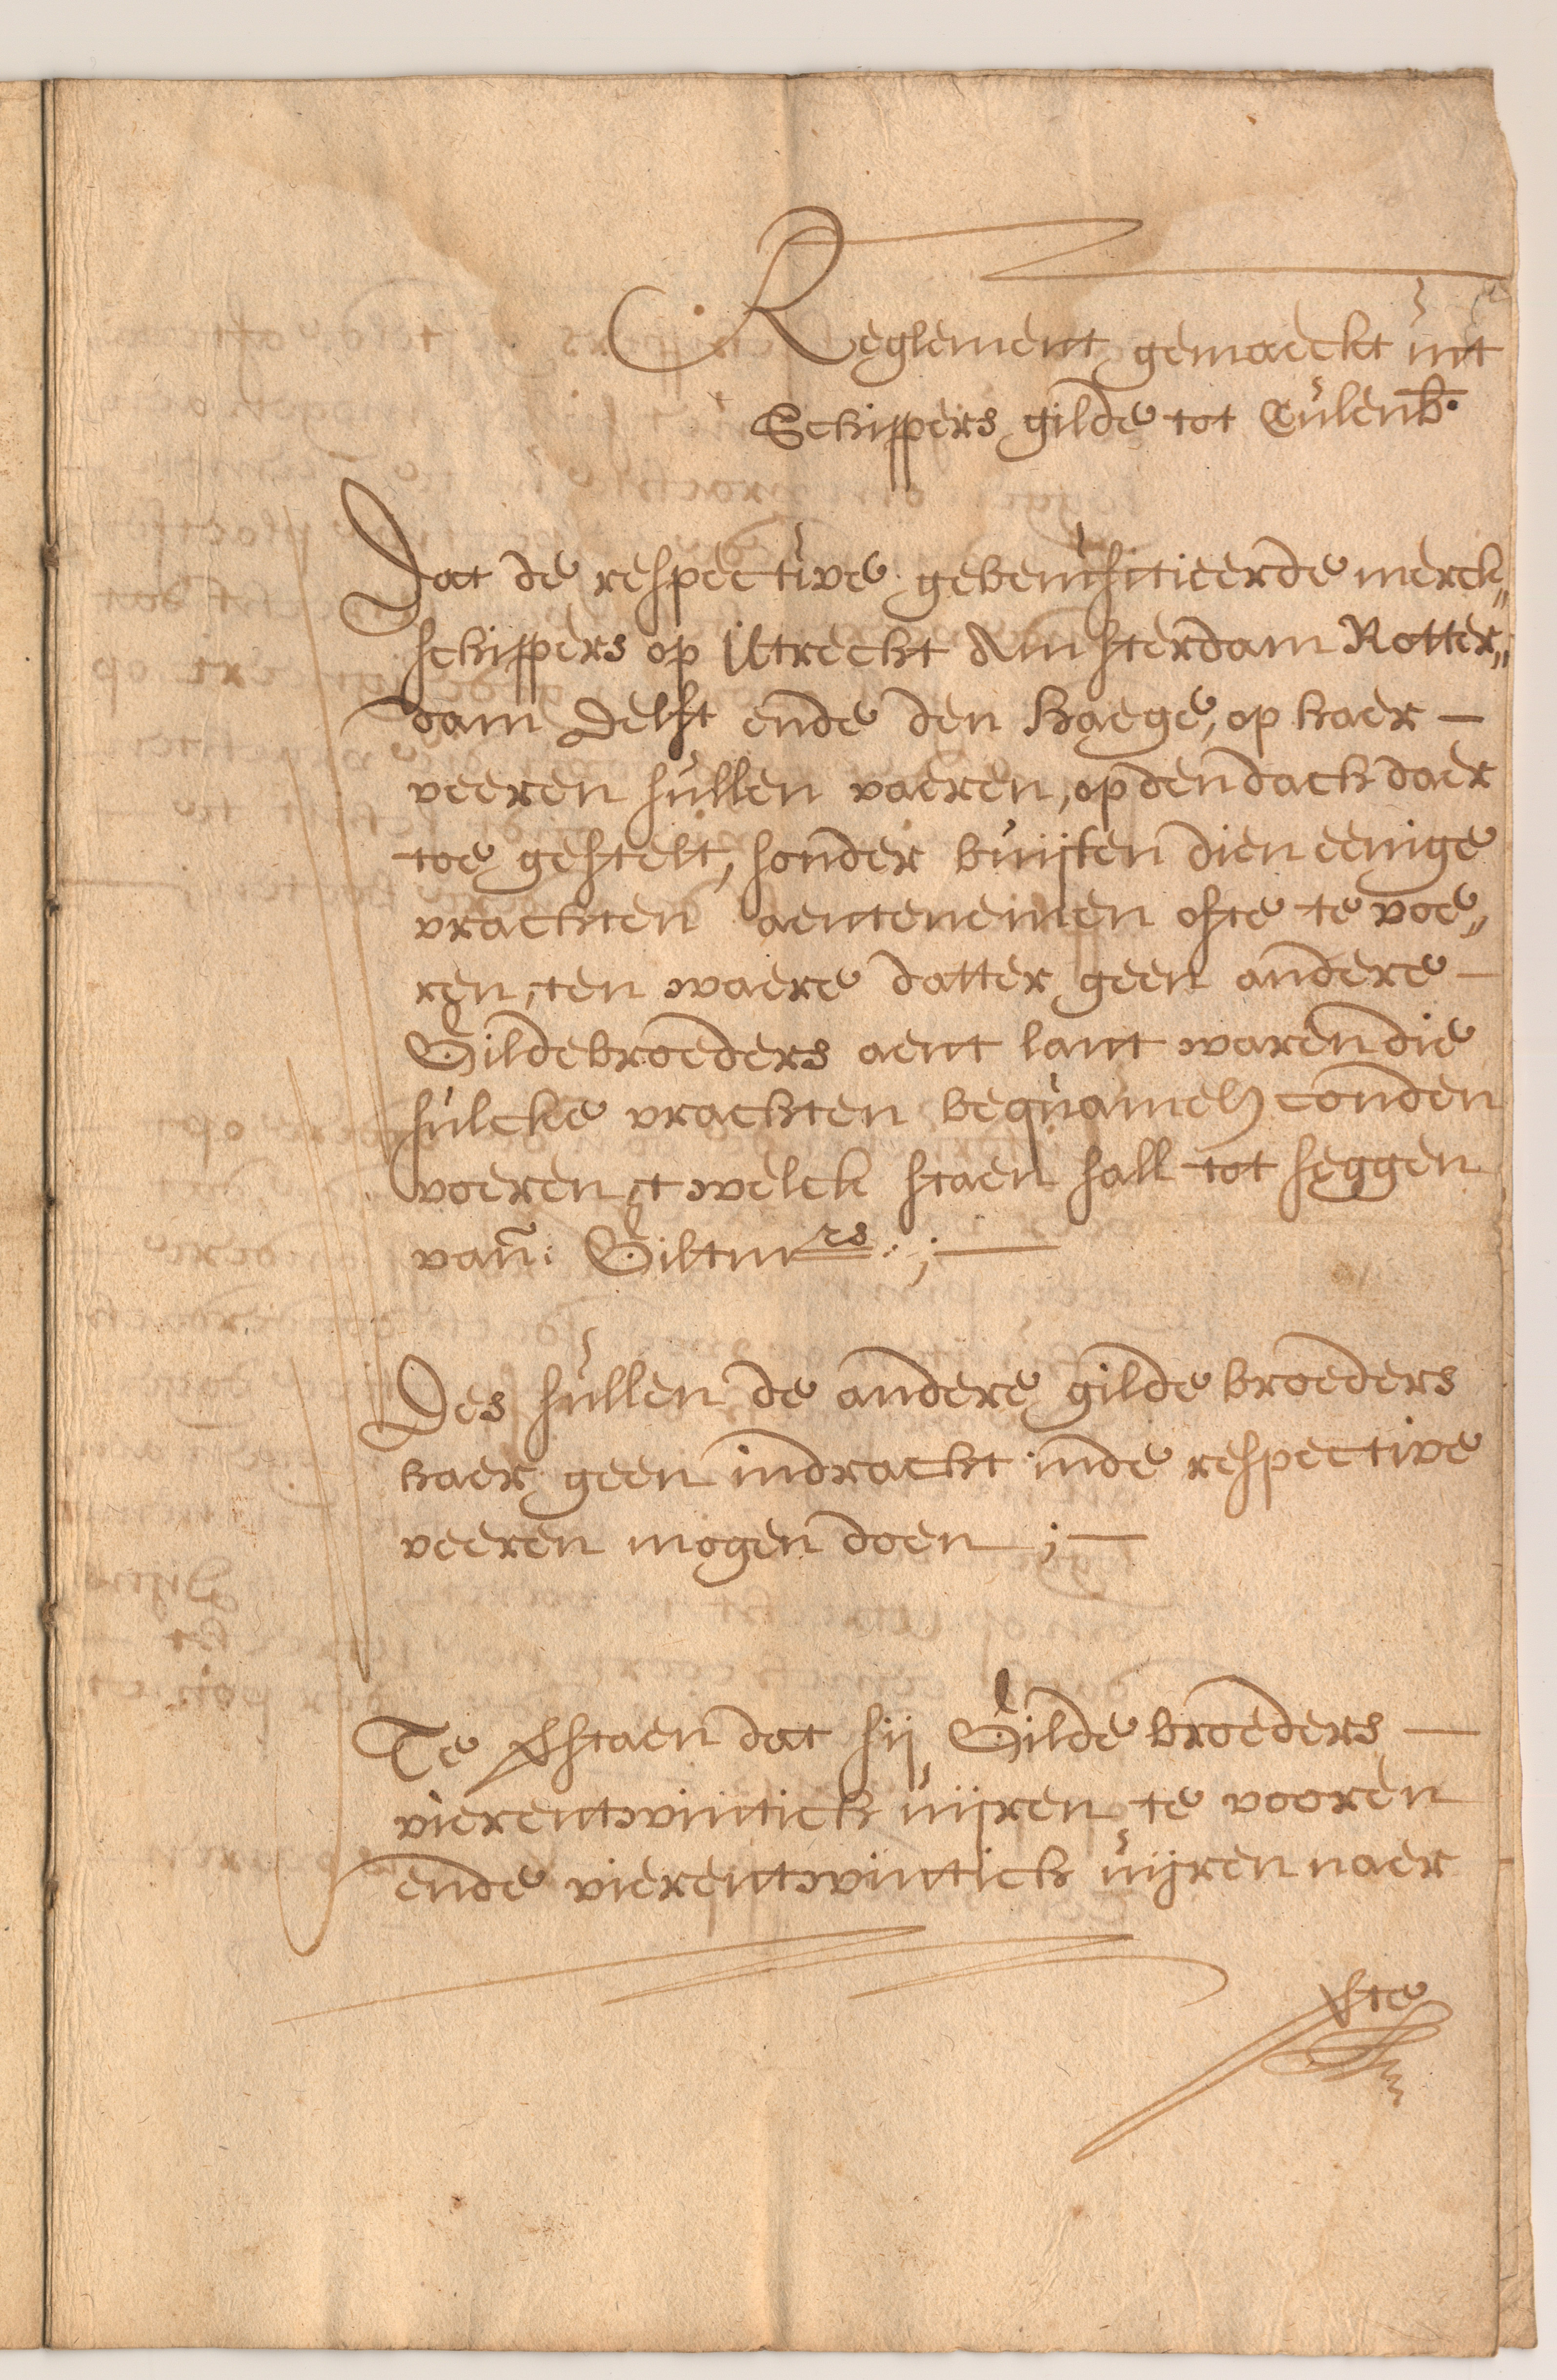 Reglement gemaeckt int
Schippers gilde tot Cúlenb.
Dat de respectíve gebeneficieerde merck„
schippers op Utrecht Amsterdam Rotter„
dam Delft ende den Haege, op haer —
veeren súllen vaeren, op den dach daer
toe gestelt, sonder búijten dien eenige
vrachten aentenemen ofte te voe„
ren, ten waere datter geen andere —
Gildebroeders aent lant waren die
súlcke vrachten beqúamel conden
voeren, t welck staen sall tot seggen
van: Giltmrs:;—
Des súllen de andere gilde broeders
haer geen indracht inde respective
veeren mogen doen ;—
Te vstaen dat sij Gilde broeders —
vierentwintich úijren te vooren
ende vierentwintich úijren naer